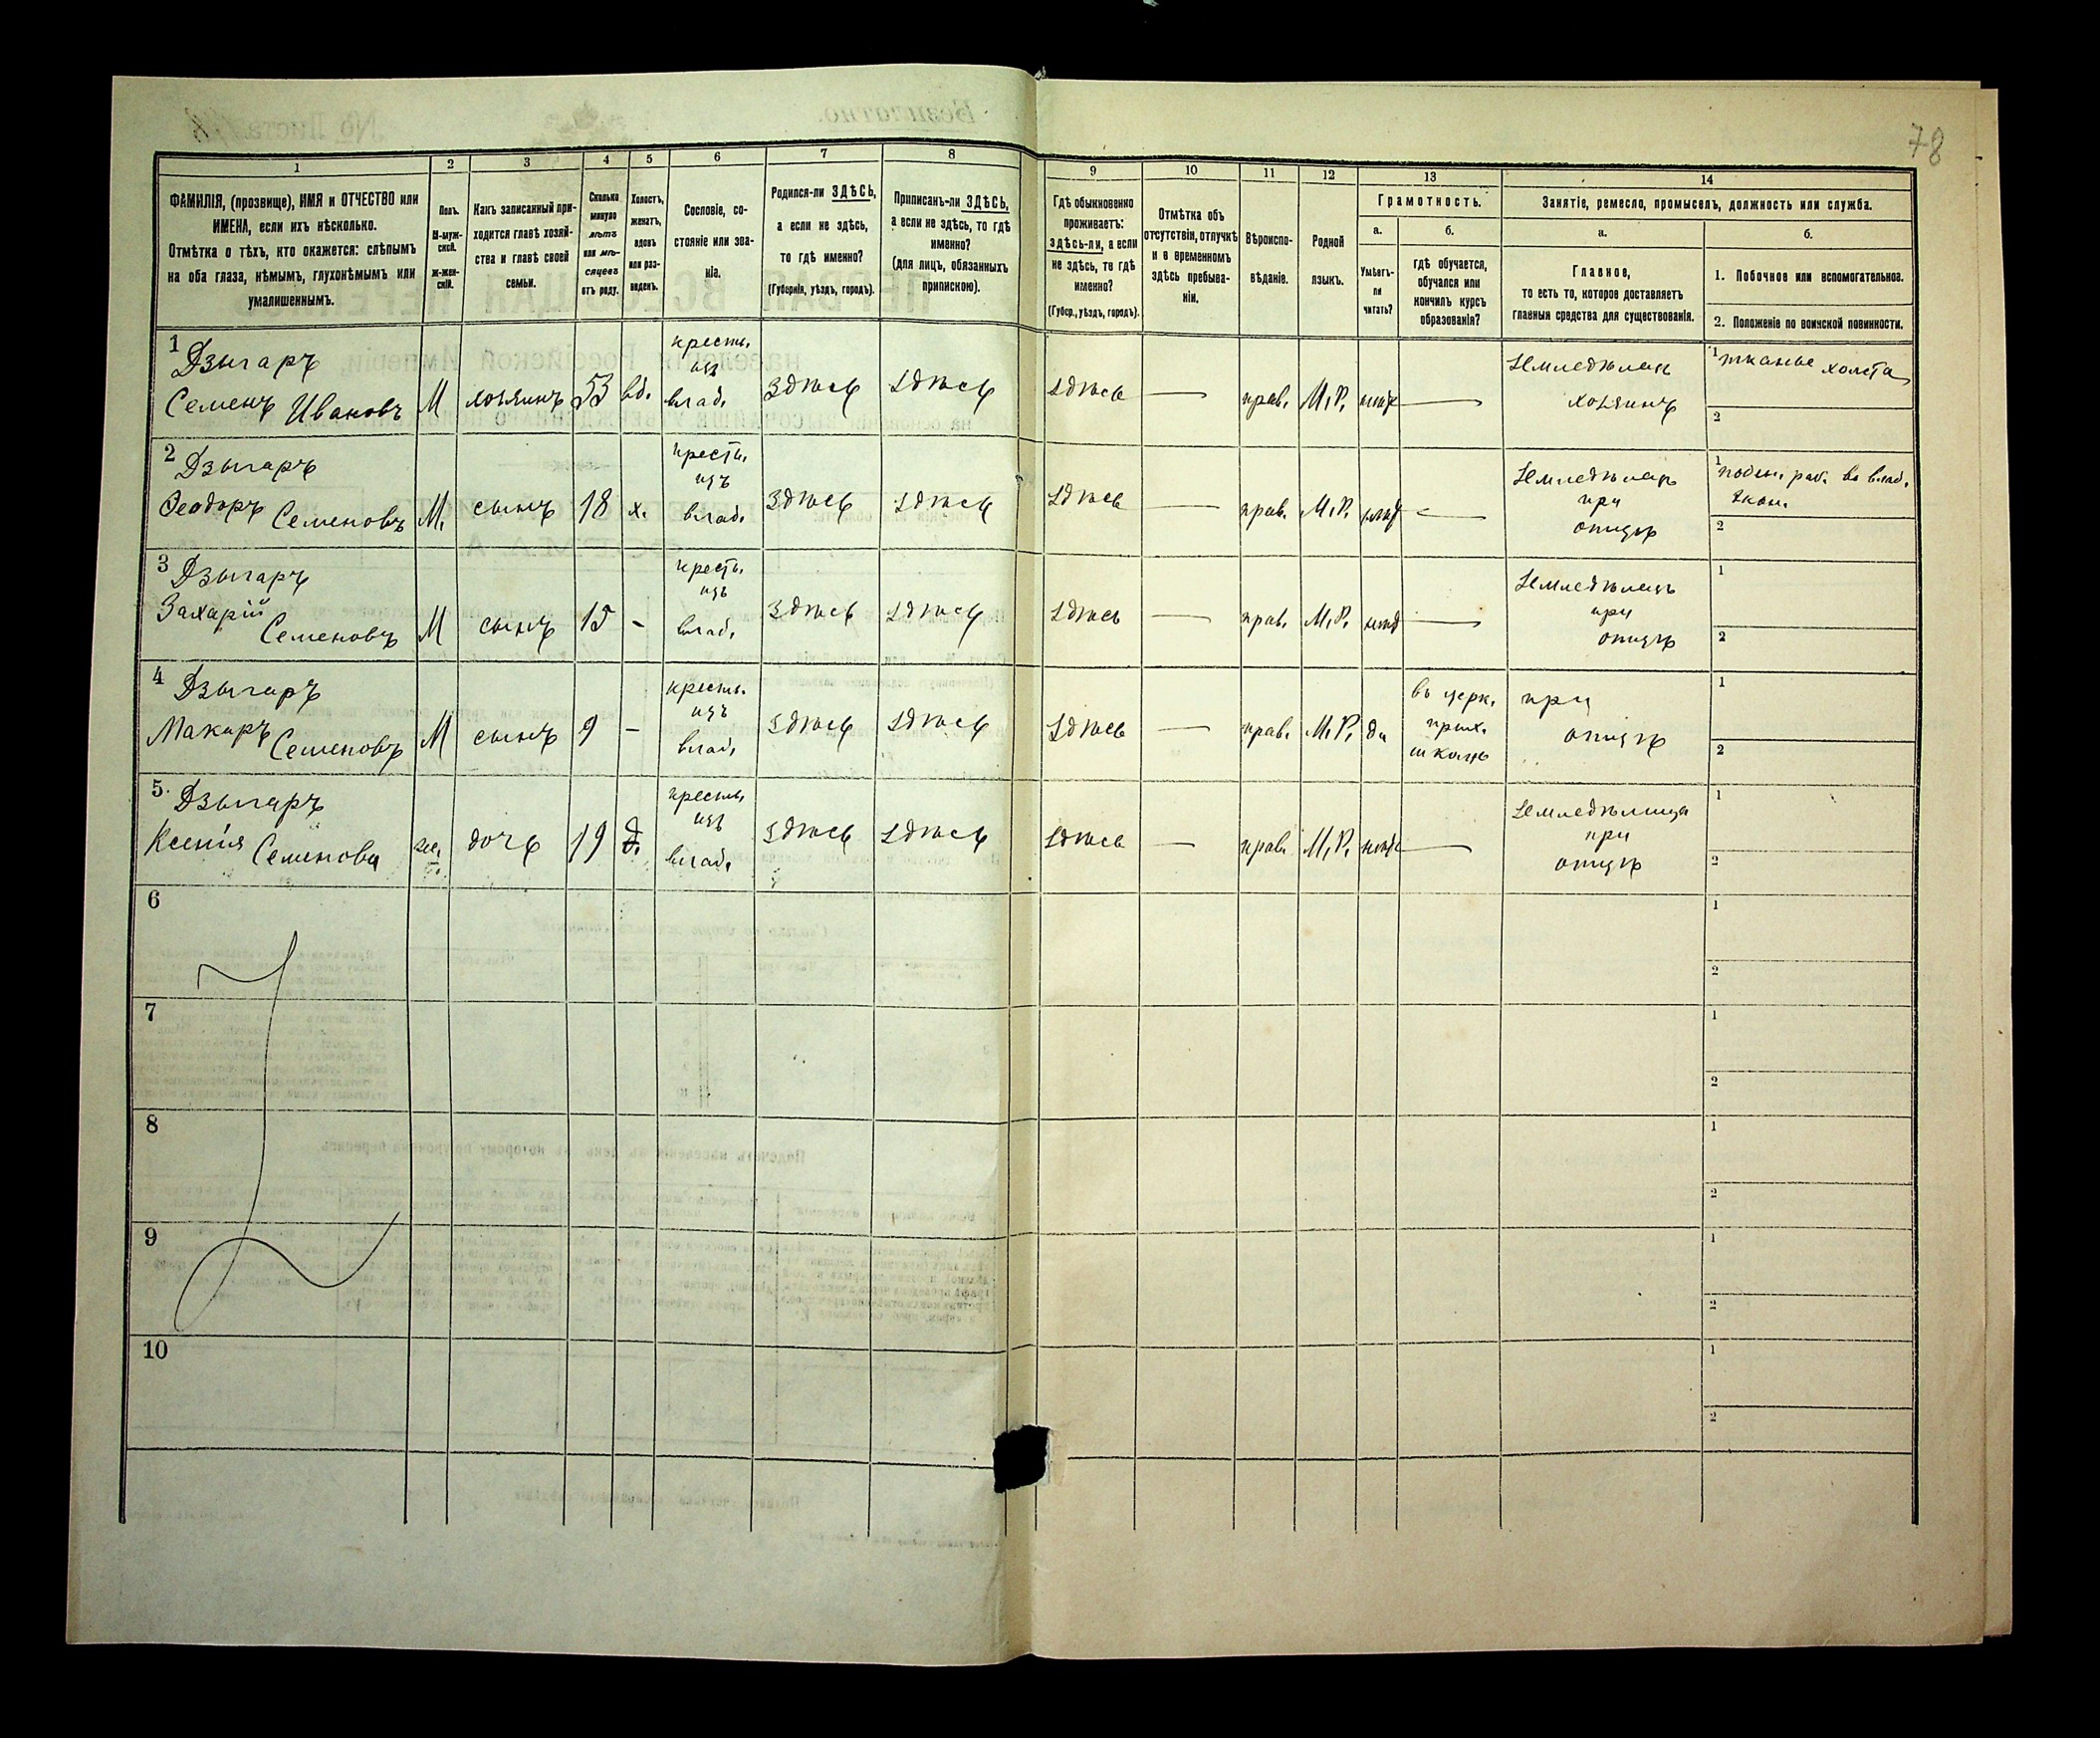 78
1 2 3 4 5 6 7 8 9 10 11 12 13 14
ФАМИЛІЯ, (прозвище), ИМЯ и ОТЧЕСТВО или
ИМЕНА, если ихъ нѣсколько.
Отмѣтка о тѣхъ, кто окажется: слѣпымъ
на оба глаза, нѣмымъ, глухонѣмымъ или
умалишеннымъ.
Полъ.
М-муж-
ской.
Ж-жен-
скій.
Какъ записанный при-
ходится главѣ хозяй-
ства и главѣ своей
семьи.
Сколько
минуло
лѣтъ
или мѣ-
сяцевъ
отъ роду.
Холостъ,
женатъ,
вдовъ
или раз-
веденъ.
Сословіе, со-
стояніе или зва-
ніе.
Родился-ли ЗДѢСЬ,
а если не здѣсь,
то гдѣ именно?
(Губернія, уѣздъ, городъ).
Приписанъ-ли ЗДѢСЬ,
а если не здѣсь, то гдѣ
именно?
(для лицъ, обязанныхъ
припискою).
Гдѣ обыкновенно
проживаетъ:
здѣсь-ли, а если
не здѣсь, то гдѣ
именно?
(Губер., уѣздъ, городъ).
Отмѣтка объ
отсутствіи, отлучкѣ
и о временномъ
здѣсь пребыва-
ніи.
Вѣроиспо-
вѣданіе.
Родной
языкъ.
Грамотность.
а.
Умѣетъ-
ли
читать?
б.
гдѣ обучается,
обучался или
кончилъ курсъ
образованія?
Занятіе, ремесло, промыселъ, должность или служба.
а.
Главное,
то есть то, которое доставляетъ
главныя средства для существованія.
б.
1. Побочное или вспомогательное.
2. Положеніе по воинской повинности.
1 Дзыгаръ
Семенъ Ивановъ М хозяинъ 53 вд. кресть. изъ влад. Здѣсь Здѣсь Здѣсь — прав. М.Р. нѣтъ — Земледѣлецъ хозяинъ 1 тканье холста
2
2 Дзыгаръ
Ѳеодоръ Семеновъ М. сынъ 18 х. кресть. изъ влад. Здѣсь Здѣсь Здѣсь — прав. М.Р. нѣтъ — Земледѣлецъ при отцѣ 1 поден. раб. во влад. экон.
2
3 Дзыгаръ
Захарій Семеновъ М сынъ 15 - кресть. изъ влад. Здѣсь Здѣсь Здѣсь — прав. М.Р. нѣтъ — Земледѣлецъ при отцѣ 1
2
4 Дзыгаръ
Макаръ Семеновъ М сынъ 9 - кресть. изъ влад. Здѣсь Здѣсь Здѣсь — прав. М.Р. да въ церк. прих. школѣ при отцѣ 1
2
5. Дзыгаръ
Ксенія Семенова ж. дочь 19 д. кресть. изъ влад. Здѣсь Здѣсь Здѣсь — прав. М.Р. нѣтъ — Земледѣлица при отцѣ 1
2
6 1
2
7 1
2
8 1
2
9 1
2
10 1
2